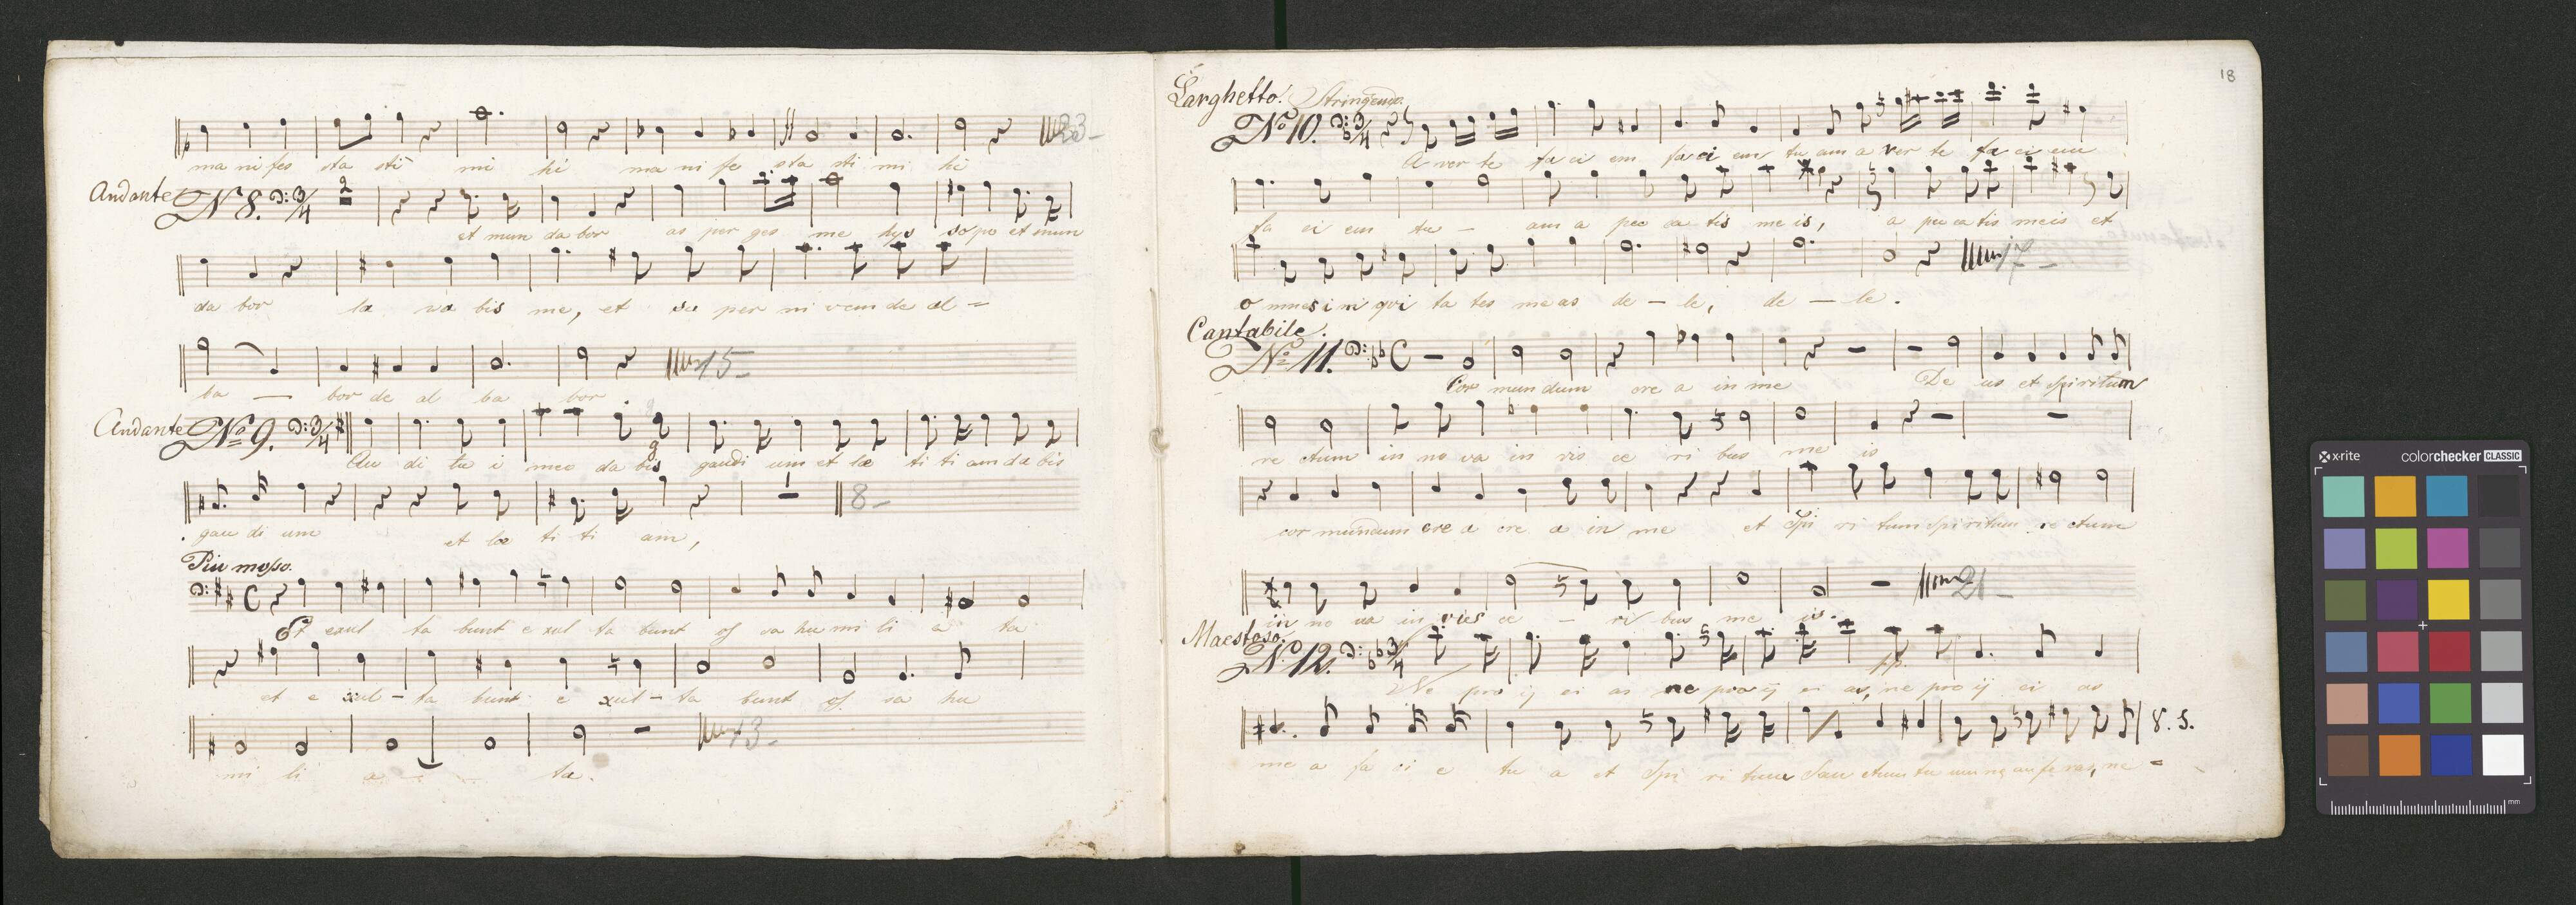 ma ni fes sta sti mi hi ma ni fe sta sti mi hi
23-
Andante
No 8. 3/4 2
et mun da bor as per ges me hys sopo et mun
da bor la va bis me, et su per ni vem de al =
15-
ba — bor de al ba bor
Andante No 9. 3/4
Au di tu i meo da bis gaudi um et læ ti ti am da bis
1 8-
gau di um et læ ti ti am,
Piu mosso.
C
Et exul ta bunt e xul ta bunt os sa hu mi li a ta
et e xul - ta bunt e xul - ta bunt os sa hu
13-
mi li a - - ta.
18
Larghetto. Stringendo.
No 10. 3/4
A ver te fa ci em fa ci em tu am a ver te fa ci em
fa ci em tu - am a pec ca tis me is, a pec ca tis meis et
17-
o mnes in i qui ta tes meas de - le, de - le.
Cantabile.
No 11. C
Cor mundum cre a in me De us et spiritum
re ctum in no va in vis ce ri bus me is
cor mundum cre a cre a in me et Spi ri tum spiritum rectum
21-
in no va in vis ce - ri bus me is.
Maestoso.
No 12. 3/4
pp.
Ne pro ij ci as ne pro ij ci as, ne pro ij ci as
V. S.
me a fa ci e tu a et Spi ri tum San ctum tu um ne auferas, ne =
x-rite colorchecker CLASSIC
mm